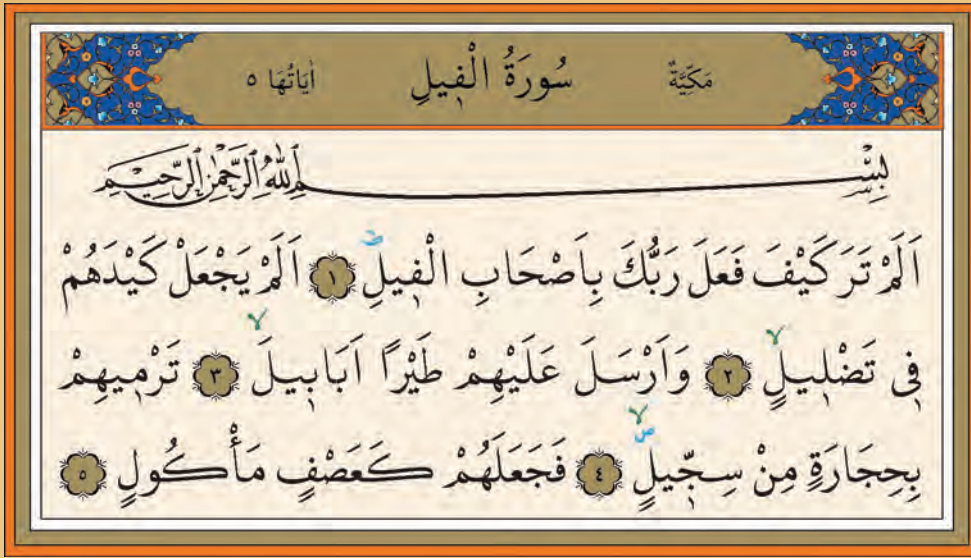 مَكِّيَّةٌ سُورَةُ الْف۪يلِ اٰيَاتُهَا ٥
بِسْمِ اللّٰهِ الرَّحْمٰنِ الرَّحِيمِ
اَلَمْ تَرَ كَيْفَ فَعَلَ رَبُّكَ بِاَصْحَابِ الْف۪يلِۜ ١ اَلَمْ يَجْعَلْ كَيْدَهُمْ
ف۪ي تَضْل۪يلٍۙ ٢ وَاَرْسَلَ عَلَيْهِمْ طَيْرًا اَبَاب۪يلَۙ ٣ تَرْم۪يهِمْ
بِحِجَارَةٍ مِنْ سِجّ۪يلٍۙۖ ٤ فَجَعَلَهُمْ كَعَصْفٍ مَأْكُولٍ ٥